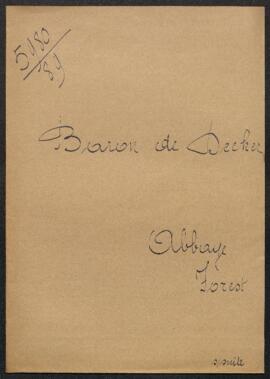 5180
/89
Baron de Decker
Abbaye
Forest